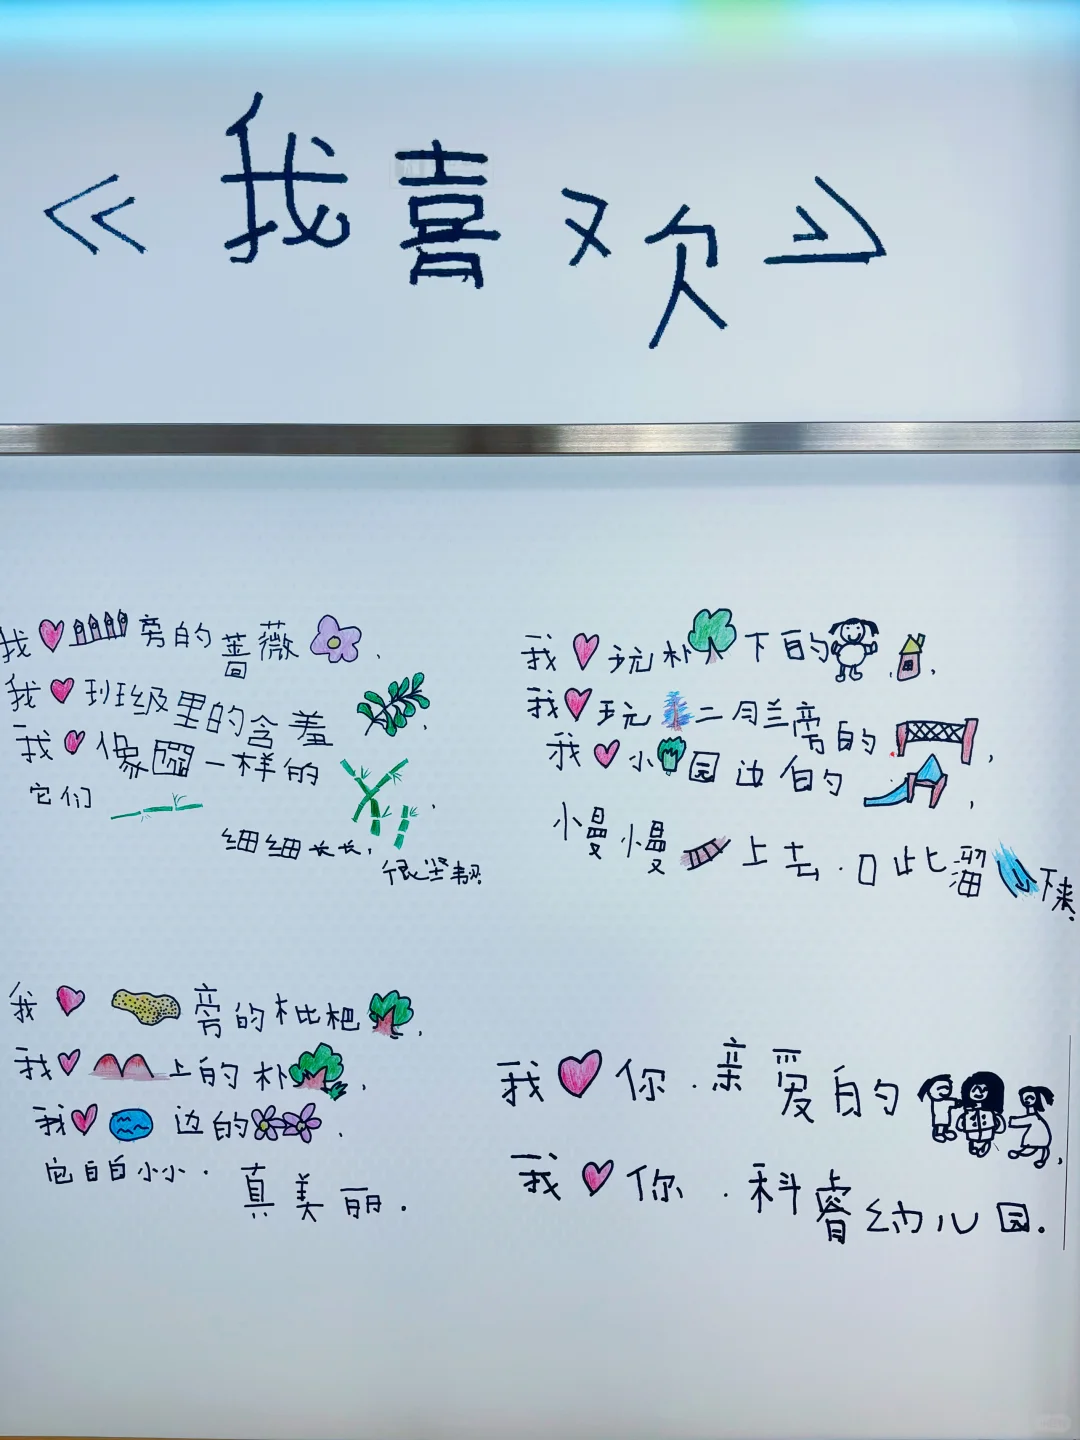 《我喜欢》
我旁的蔷薇，
我班级里的含羞，
我像圈一样的，
它们
细细长长，
很坚韧
我旁的枇杷，
我上的朴，
我边的，
它白白小小．
真美丽．
我玩朴下的，
我玩二月兰旁的，
我小园边的，
慢慢上去．口此溜下来．
我你．亲爱的，
我你．科睿幼儿园．